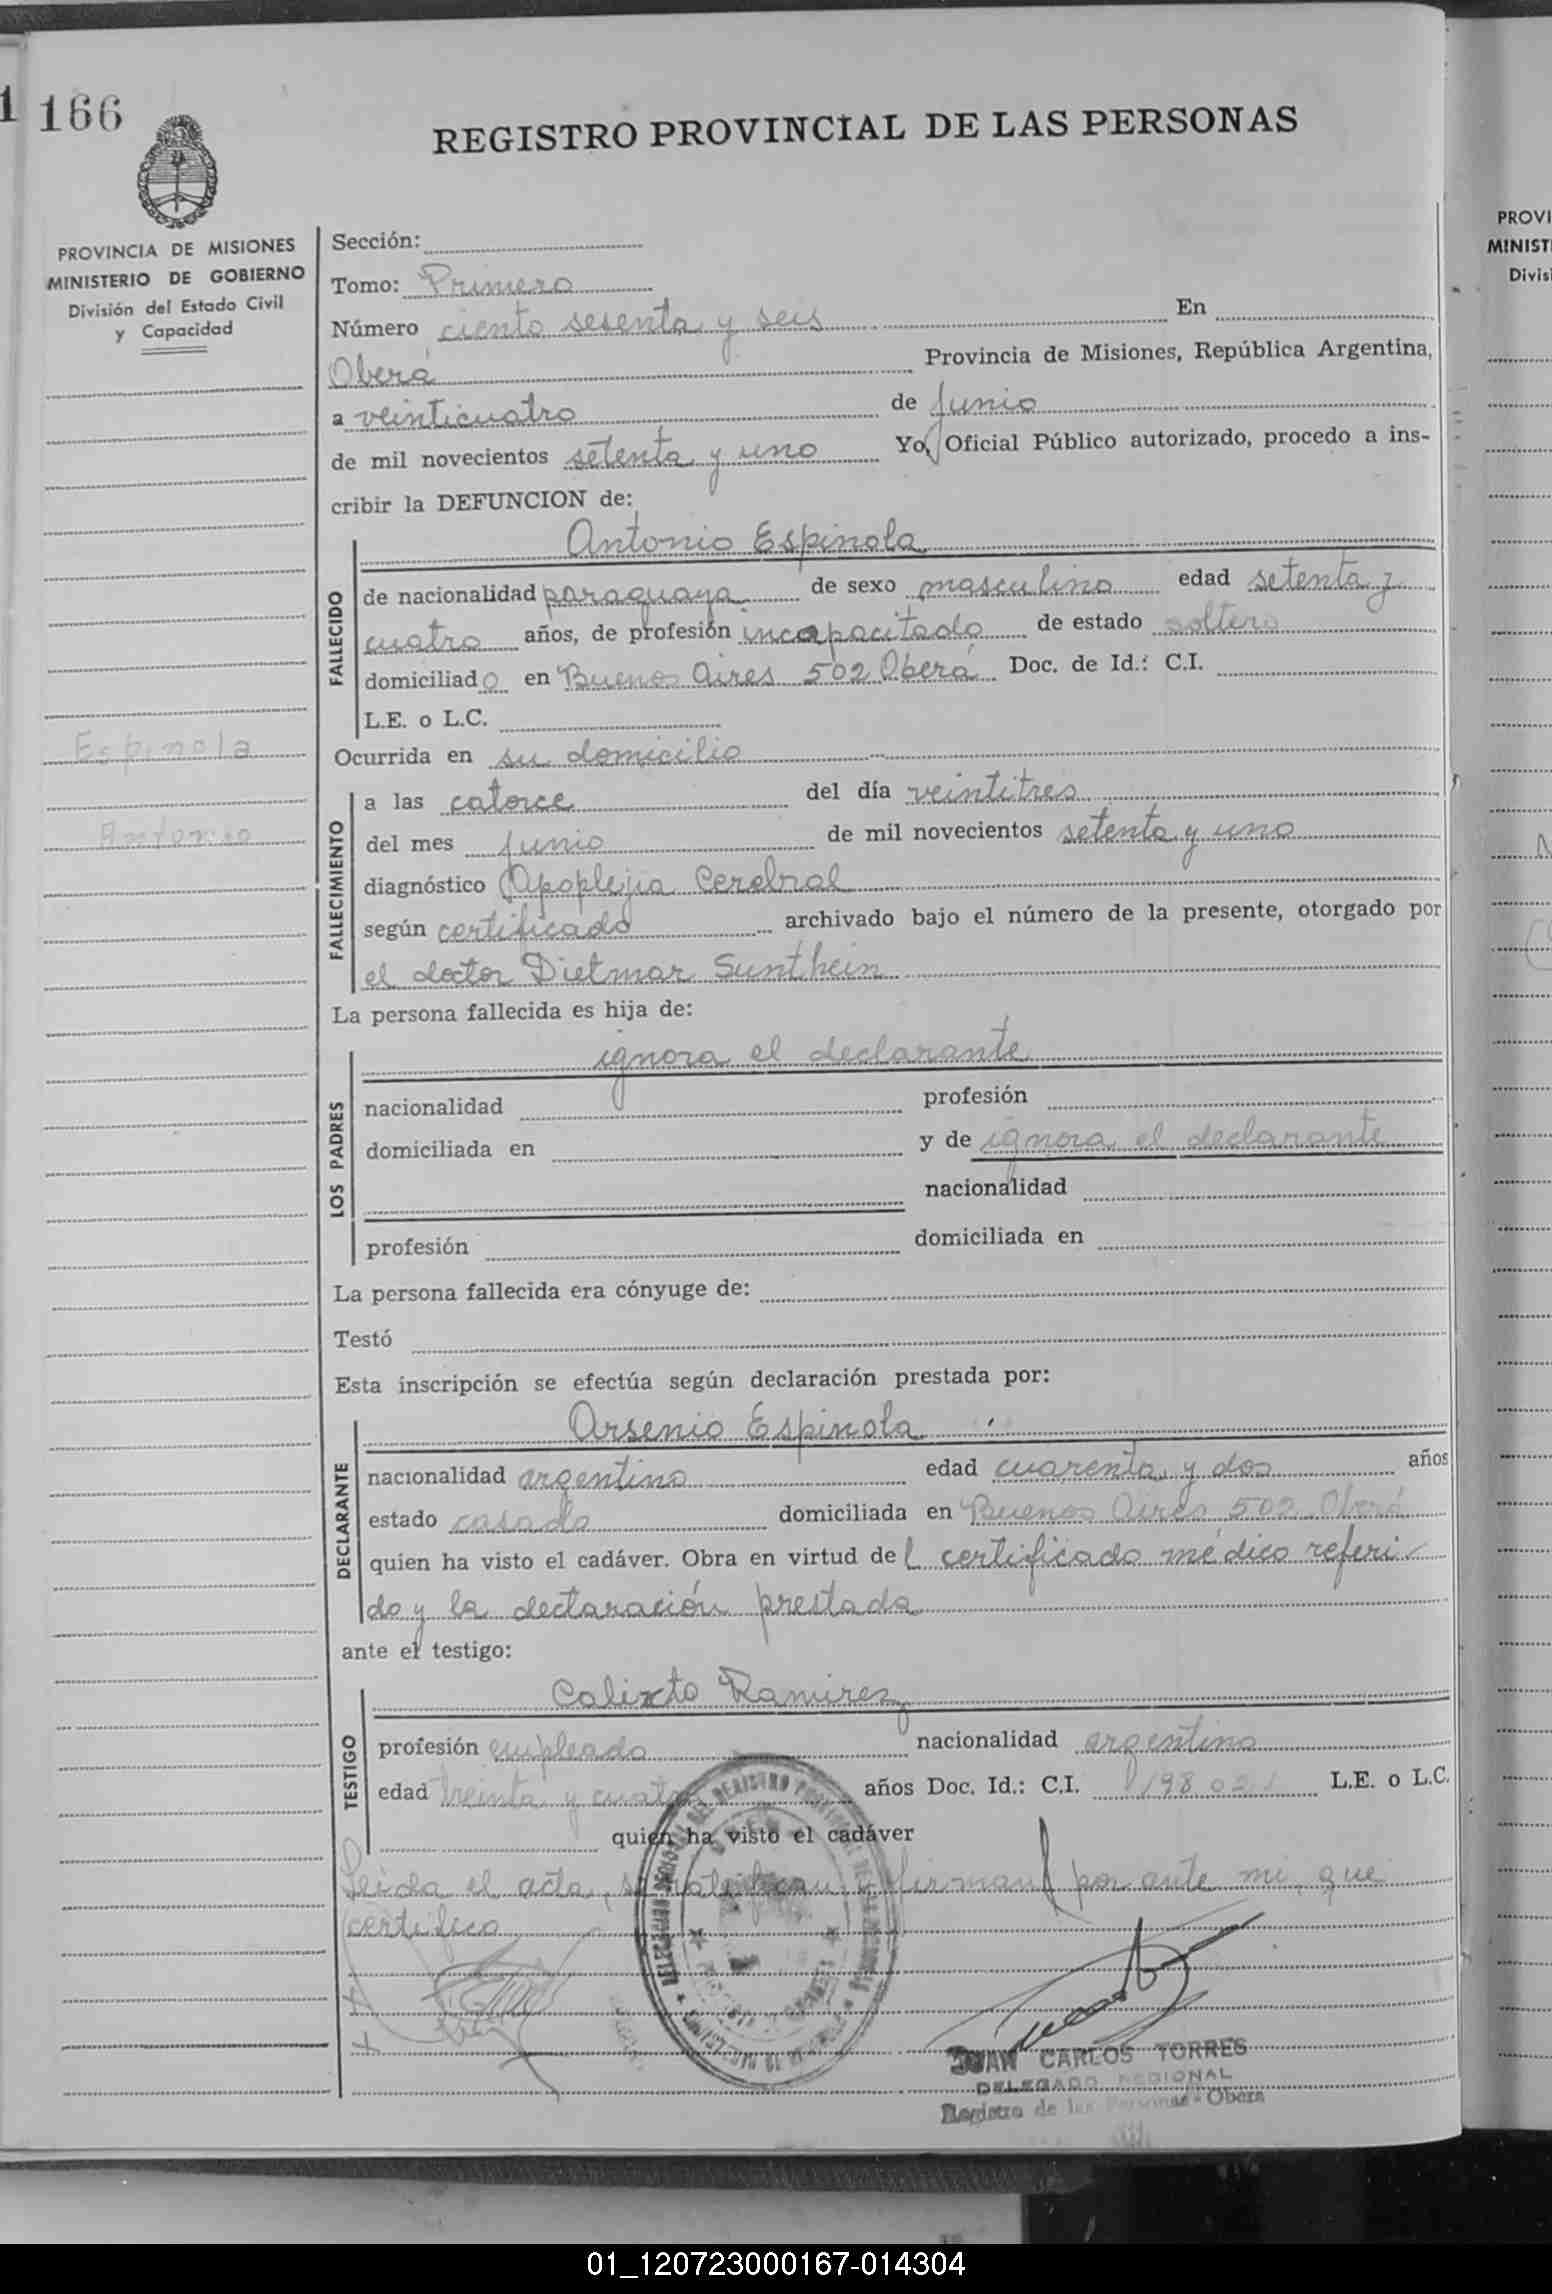 1 166
REGISTRO PROVINCIAL DE LAS PERSONAS
PROVINCIA DE MISIONES
MINISTERIO DE GOBIERNO
División del Estado Civil
y Capacidad
Espinola
Antonio
Sección:
Tomo: Primero
Número ciento sesenta y seis En
Oberá Provincia de Misiones, República Argentina,
a veinticuatro de junio
de mil novecientos setenta y uno Yo, Oficial Público autorizado, procedo a ins-
cribir la DEFUNCION de:
Antonio Espinola
FALLECIDO
de nacionalidad paraguaya de sexo masculino edad setenta y
cuatro años, de profesión incapacitado de estado soltero
domiciliado en Buenos Aires 502 Oberá Doc. de Id.: C.I.
L.E. o L.C.
Ocurrida en su domicilio
FALLECIMIENTO
a las catorce del día veintitres
del mes junio de mil novecientos setenta y uno
diagnóstico Apoplejia Cerebral
según certificado archivado bajo el número de la presente, otorgado por
el doctor Dietmar Sunthein
La persona fallecida es hija de:
ignora el declarante
LOS PADRES
nacionalidad profesión
domiciliada en y de ignora el declarante
nacionalidad
profesión domiciliada en
La persona fallecida era cónyuge de:
Testó
Esta inscripción se efectúa según declaración prestada por:
Arsenio Espinola
DECLARANTE
nacionalidad argentino edad cuarenta y dos años
estado casado domiciliada en Buenos Aires 502 Oberá
quien ha visto el cadáver. Obra en virtud del certificado médico referi
do y la declaración prestada
ante el testigo:
Calixto Ramirez
TESTIGO
profesión empleado nacionalidad argentino
edad treinta y cuatro años Doc. Id.: C.I. L.E. o L.C.
quien ha visto el cadáver
Leida el acta, se ratifican y firman por ante mi, que
certifico
JUAN CARLOS TORRES
DELEGADO REGIONAL
Registro de las Personas - Oberá
PROVI
MINIST
Divis
01_120723000167-014304